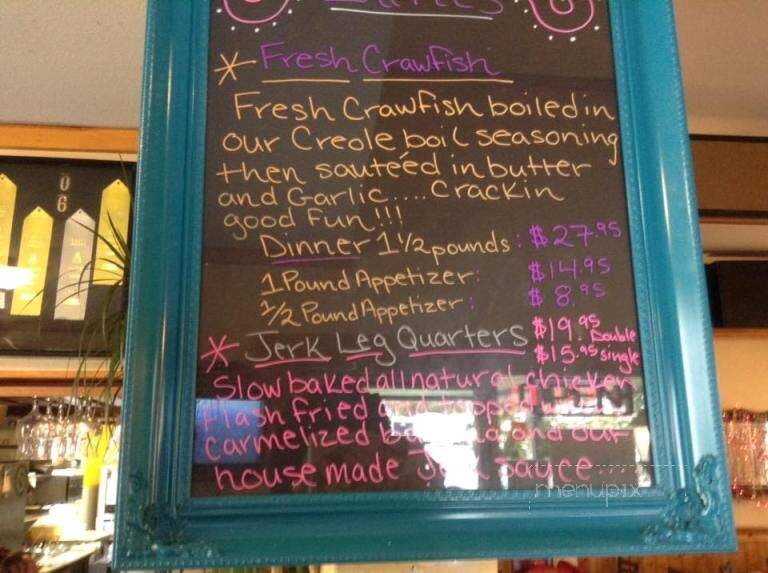 * Fresh Crawfish
Fresh Crawfish boiled in
our Creole boil seasoning
then sauteéd in butter
and Garlic.... crackin
good fun!!!
Dinner 1 1/2 pounds: $27.95
1 Pound Appetizer: $14.95
1/2 Pound Appetizer: $8.95
* Jerk Leg Quarters $19.95 Double
$15.95 single
Slow baked all natural chicken
flash fried and topped
carmelized and our
house made Jerk sauce
menupix